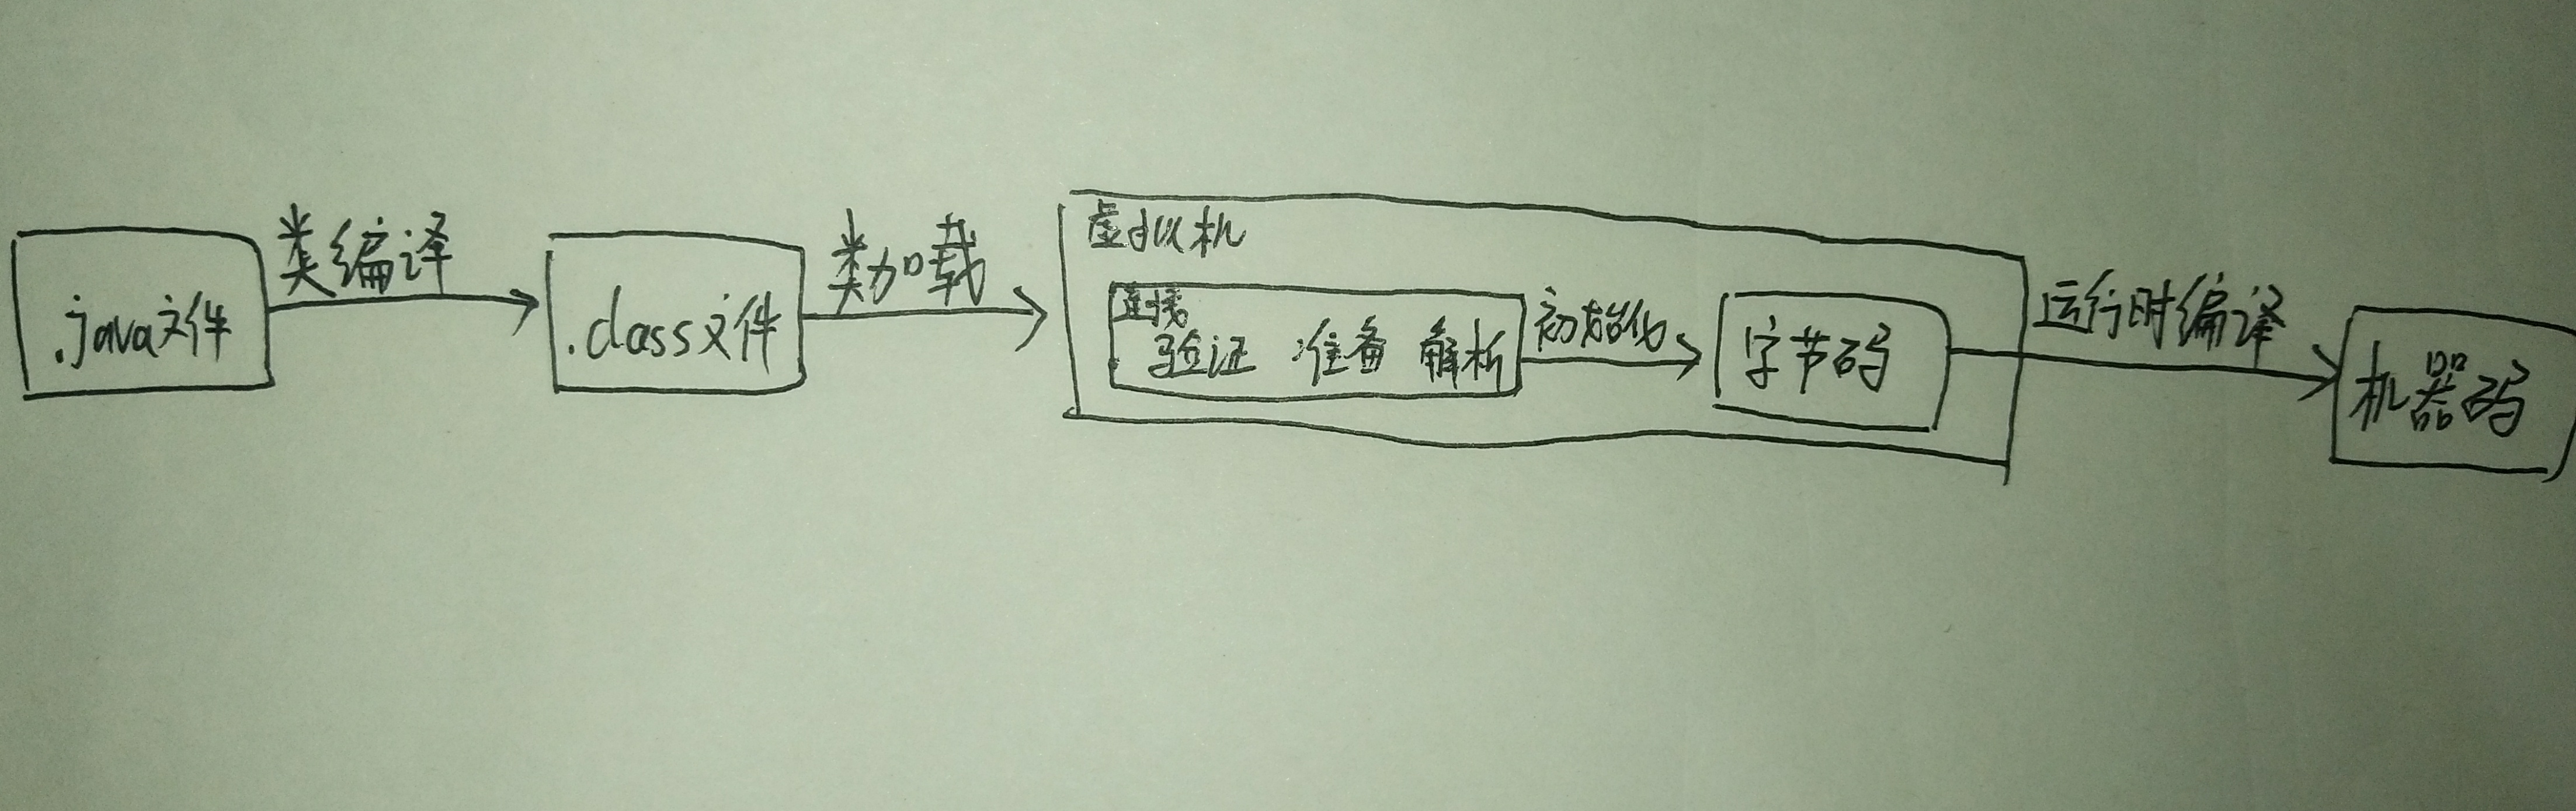 .java文件
类编译
.class文件
类加载
虚拟机
连接
验证 准备 解析
初始化
字节码
运行时编译
机器码